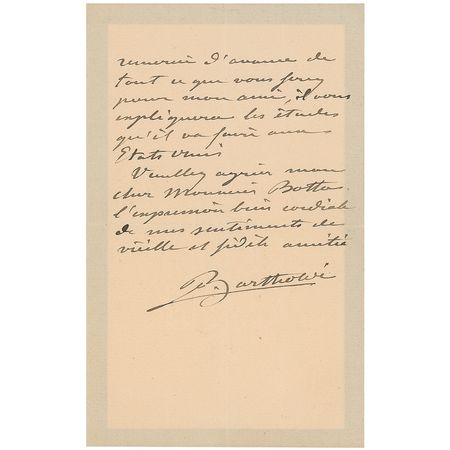 remercie d'avance de
tout ce que vous ferez
pour mon ami, il vous
expliquera les études
qu'il va faire aux
Etats unis
Veuillez agréer mon
cher Monsieur Botta
l'expression bien cordiale
de mes sentiments de
vieille et fidèle amitié
Bartholdi